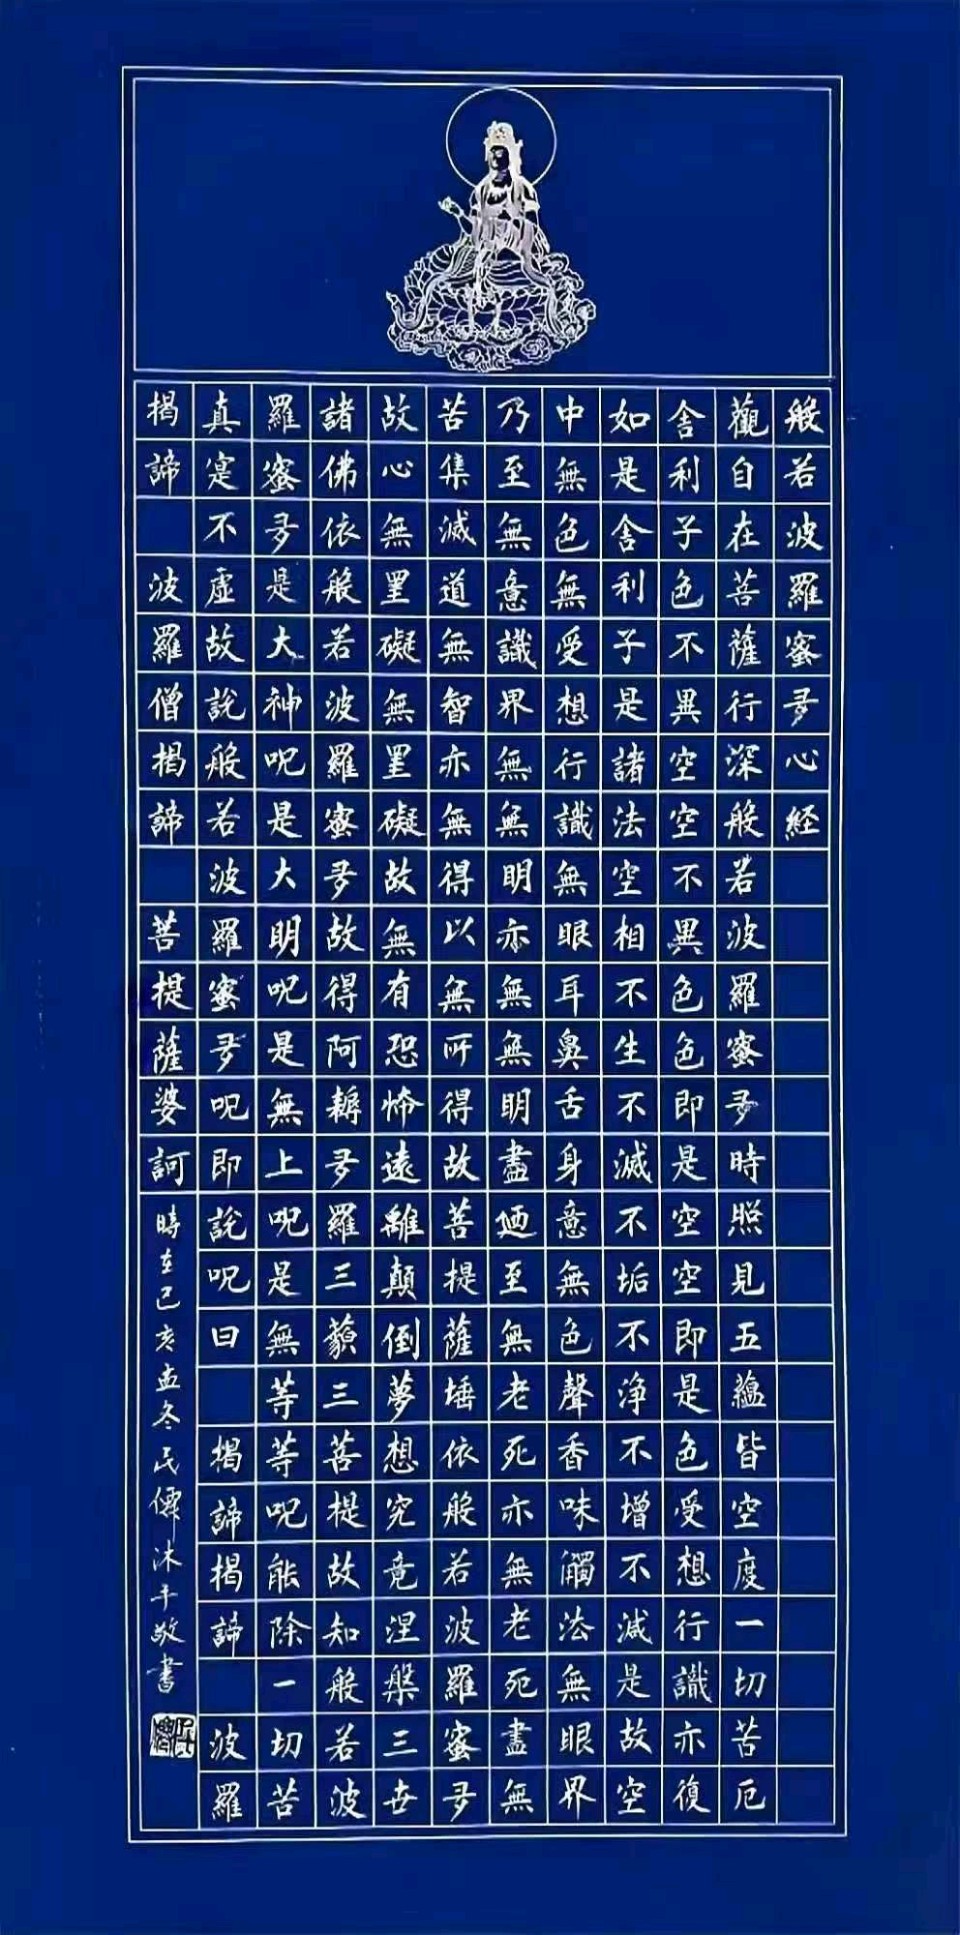 般若波羅蜜多心経
觀自在菩薩行深般若波羅蜜多時照見五蘊皆空度一切苦厄
舍利子色不異空空不異色色即是空空即是色受想行識亦復
如是舍利子是諸法空相不生不滅不垢不淨不增不減是故空
中無色無受想行識無眼耳鼻舌身意無色聲香味觸法無眼界
乃至無意識界無無明亦無無明盡廼至無老死亦無老死盡無
苦集滅道無智亦無得以無所得故菩提薩埵依般若波羅蜜多
故心無罣礙無罣礙故無有恐怖遠離顛倒夢想究竟涅槃三世
諸佛依般若波羅蜜多故得阿耨多羅三藐三菩提故知般若波
羅蜜多是大神呪是大明呪是無上呪是無等等呪能除一切苦
真寔不虛故說般若波羅蜜多呪即說呪曰 揭諦揭諦 波羅
揭諦 波羅僧揭諦 菩提薩婆訶
時在己亥孟冬民沐手敬書